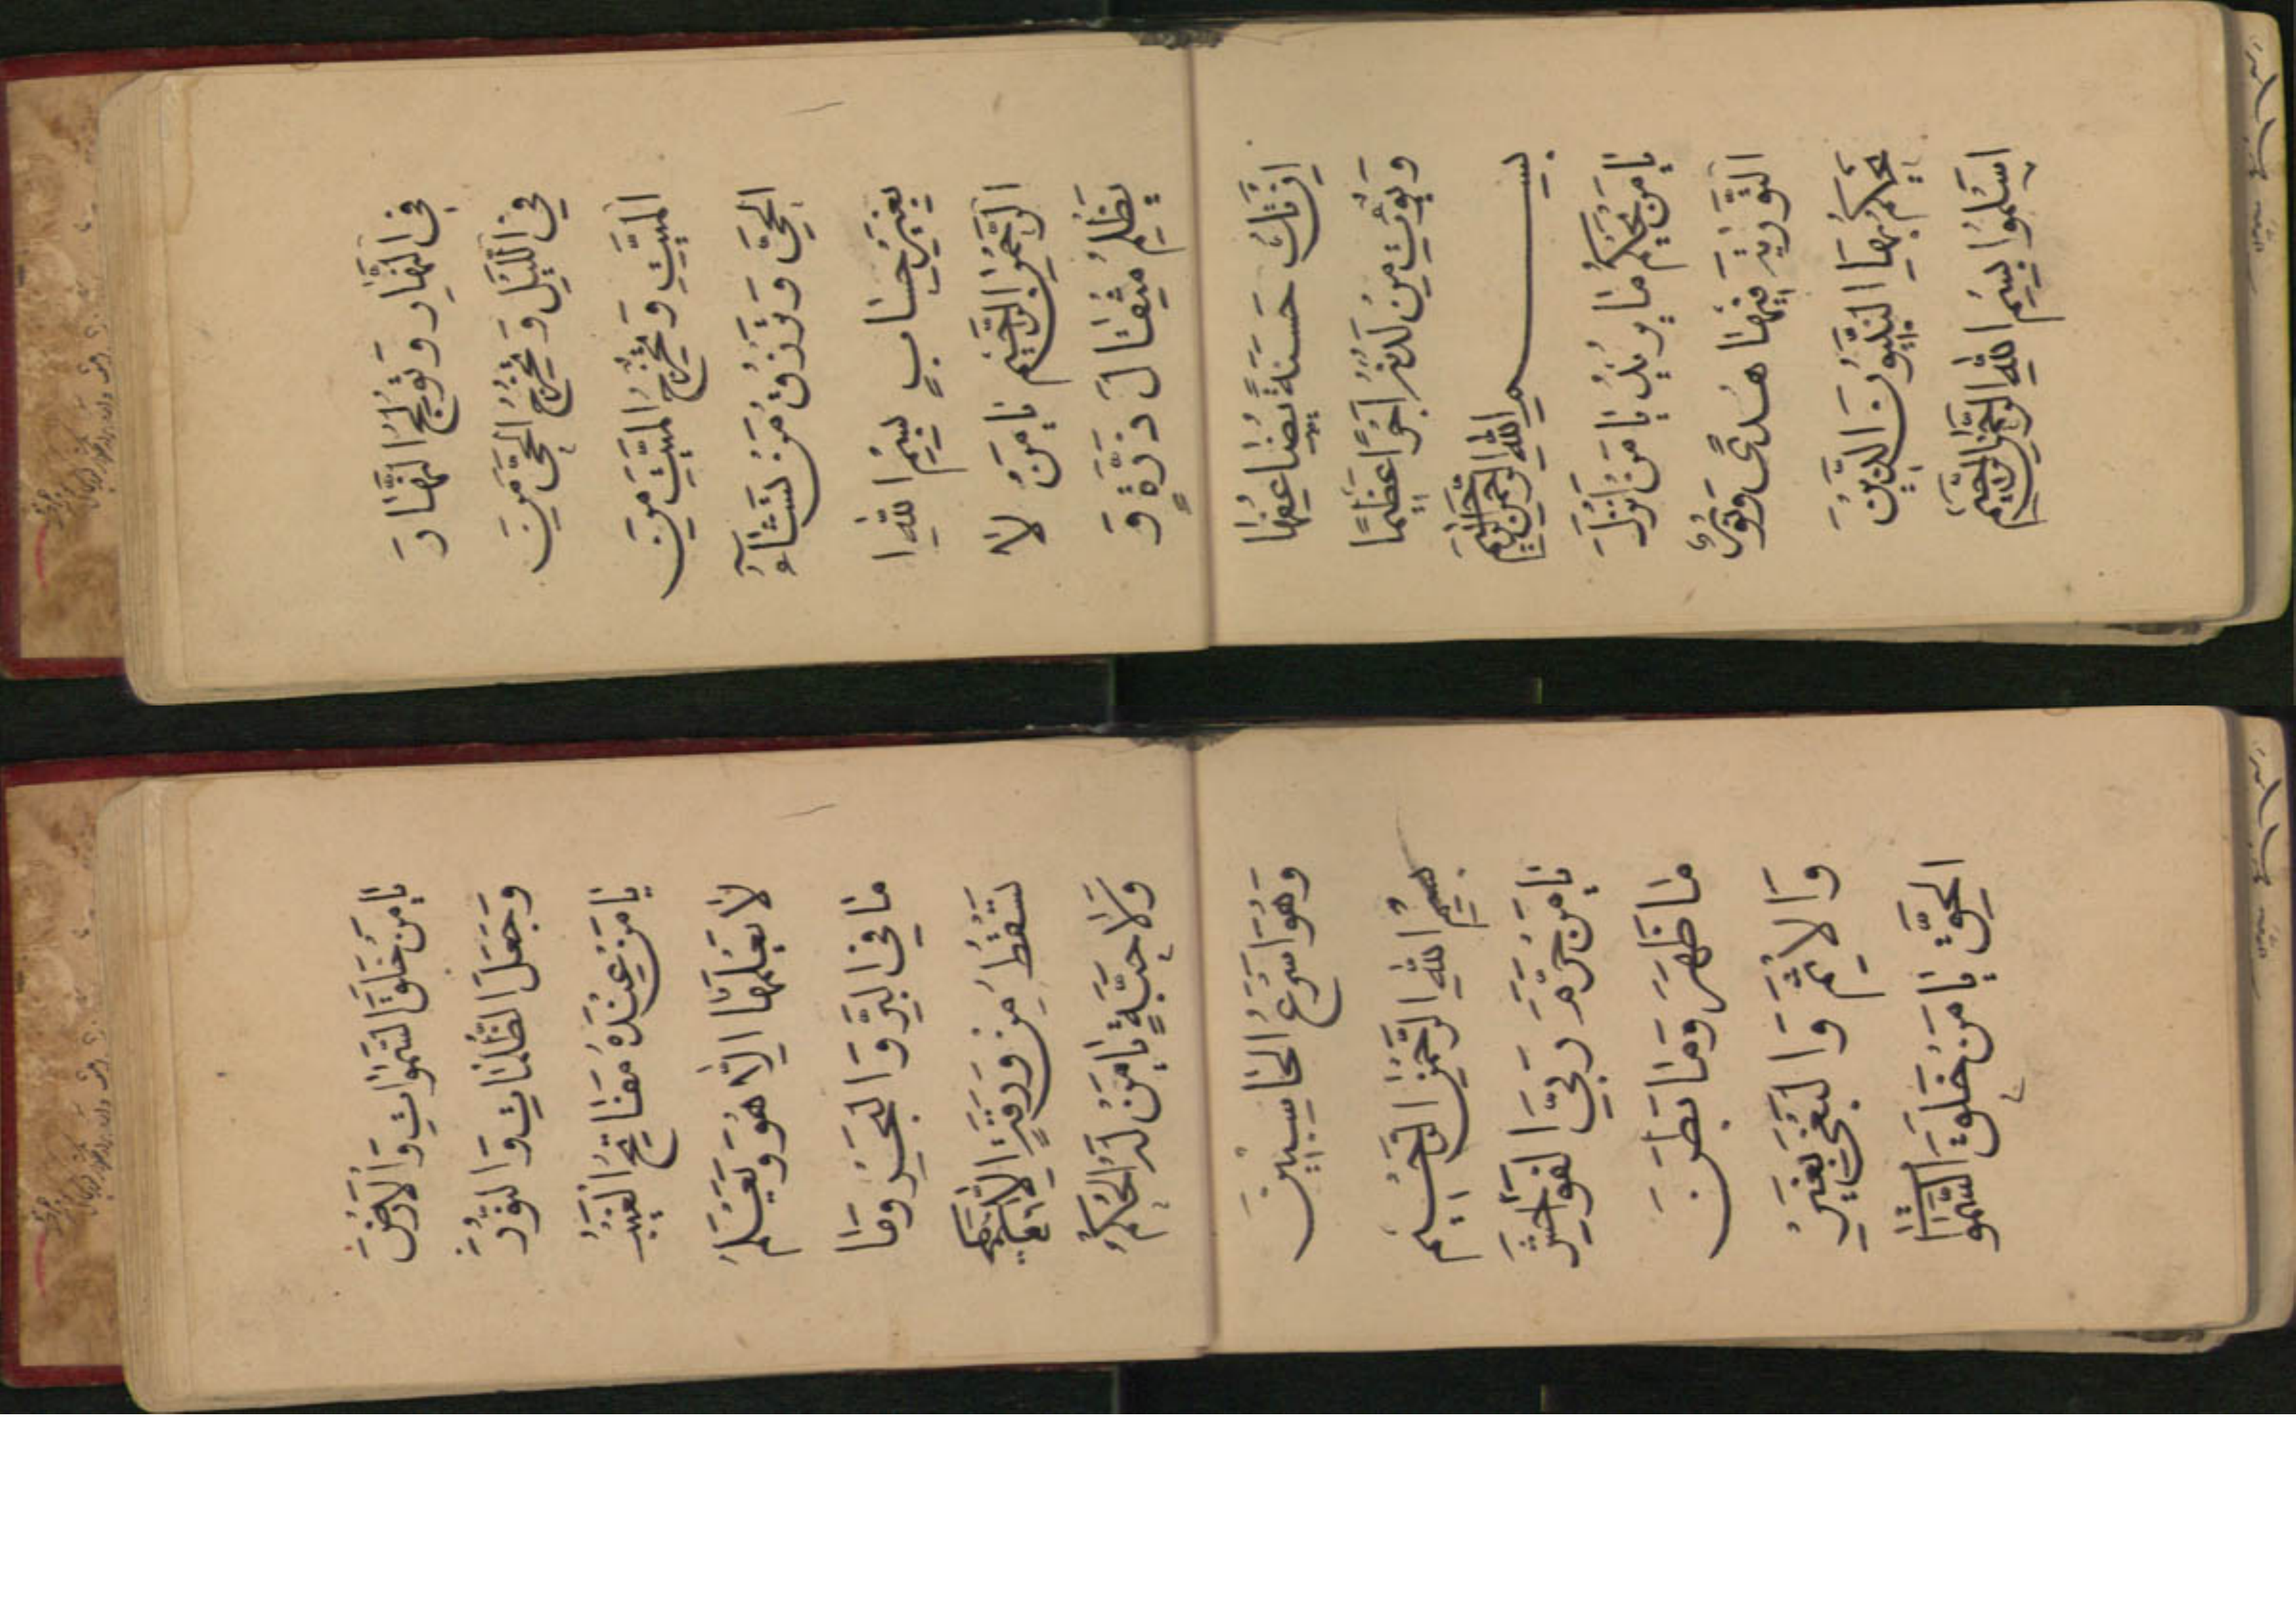 فِی النَّهَارِ وَ تُولِجُ النَّهَارَ
فِی اللَّیْلِ وَ تُخْرِجُ الْحَیَّ مِنَ
الْمَیِّتِ وَ تُخْرِجُ الْمَیِّتَ مِنَ
الْحَیِّ وَ تَرْزُقُ مَنْ تَشَآءُ
بِغَیْرِ حِسَابٍ بِسْمِ اللهِ ا
لرَّحْمٰنِ الرَّحِیْمِ یَا مَنْ لَا
یَظْلِمُ مِثْقَالَ ذَرَّةٍ وَ
اِنْ تَكُ حَسَنَةً یُضَاعِفْهَا
وَ یُؤْتِ مِنْ لَدُنْهُ اَجْرًا عَظِیْمًا
بِسْمِ اللهِ الرَّحْمٰنِ الرَّحِیْمِ
یَا مَنْ یَحْكُمُ مَا یُرِیْدُ یَا مَنْ اَنْزَلَ
التَّوْرٰیةَ فِیْهَا هُدًی وَ نُوْرٌ
یَحْكُمُ بِهَا النَّبِیُّوْنَ الَّذِیْنَ
اَسْلَمُوْا بِسْمِ اللهِ الرَّحْمٰنِ الرَّحِیْمِ
یَا مَنْ خَلَقَ السَّمٰوَاتِ وَ الْاَرْضَ
وَ جَعَلَ الظُّلُمَاتِ وَ النُّوْرَ
یَا مَنْ عِنْدَهُ مَفَاتِحُ الْغَیْبِ
لَا یَعْلَمُهَا اِلَّا هُوَ وَ یَعْلَمُ
مَا فِی الْبَرِّ وَ الْبَحْرِ وَ مَا
تَسْقُطُ مِنْ وَرَقَةٍ اِلَّا یَعْلَمُهَا
وَ لَا حَبَّةٍ یَا مَنْ لَهُ الْحُكْمُ
وَ هُوَ اَسْرَعُ الْحَاسِبِیْنَ
بِسْمِ اللهِ الرَّحْمٰنِ الرَّحِیْمِ
یَا مَنْ حَرَّمَ رَبِّیَ الْفَوَاحِشَ
مَا ظَهَرَ وَ مَا بَطَنَ
وَ الْاِثْمَ وَ الْبَغْیَ بِغَیْرِ
الْحَقِّ یَا مَنْ خَلَقَ السَّمٰوَاتِ